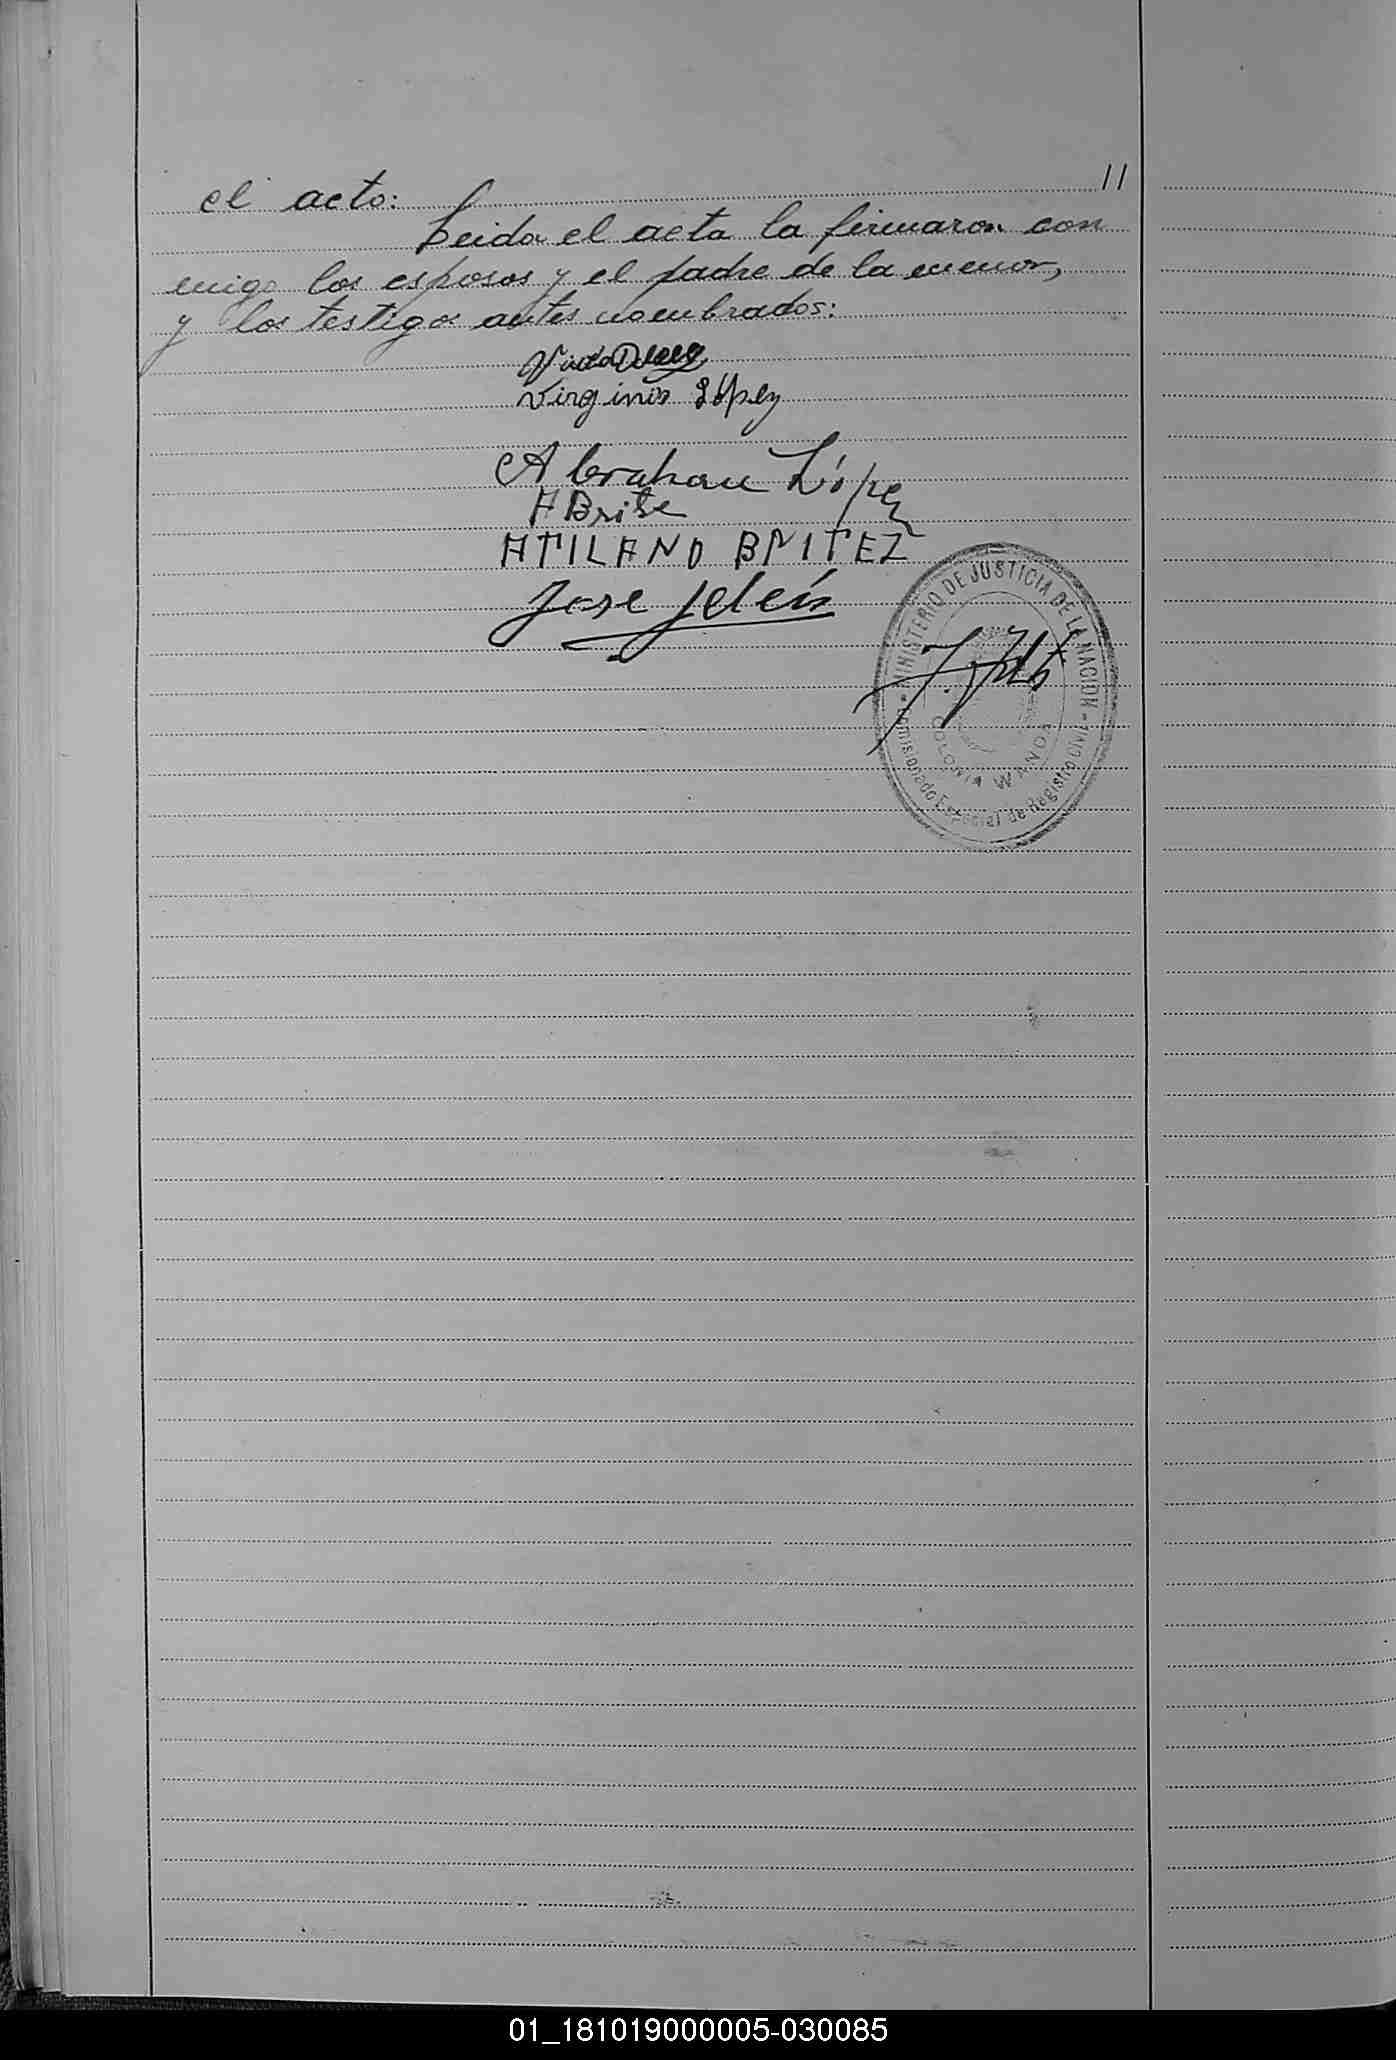 11
el acto:
Leida el acta la firmaron con
migo los esposos y el padre de la menor,
y los testigos antes nombrados:
Virginia López
Abraham López
ATILANO BNITEZ
Jose
MINISTERIO DE JUSTICIA DE LA NACION
Comisionado Especial de Registro Civil
COLONIA WANDA
01_181019000005-030085